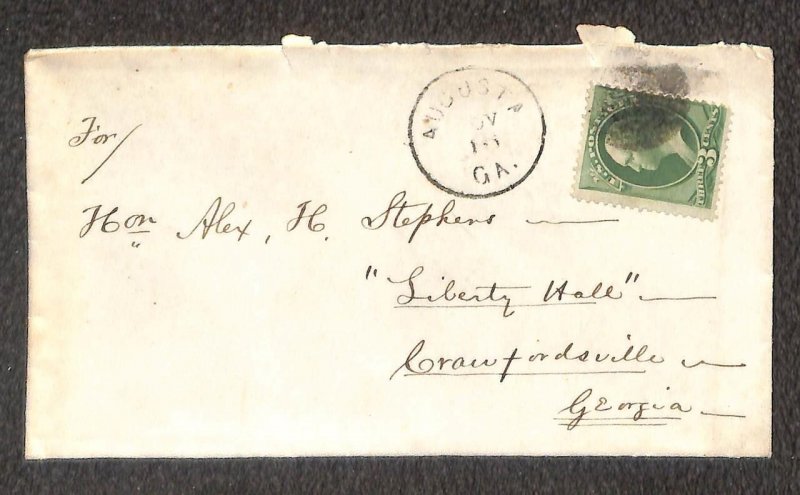 AUGUSTA
GA.
3 CENTS
U.S. POSTAGE
For/
Hon Alex, H. Stephens
"Liberty Hall"
Crawfordsville
Georgia